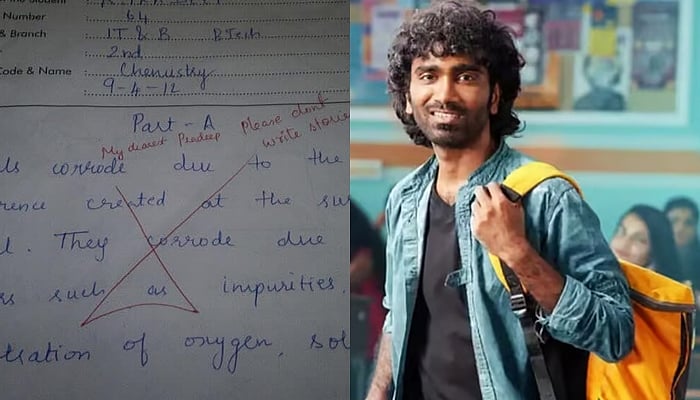 Number
64
& Branch
IT & B B.Tech
2nd
Code & Name
Chemistry
9-4-12
Part - A
My dearest Pradeep
Please dont
write stories
corrode due to the
rence created at the su
They corrode due
such as impurities.
tration of oxygen, sol